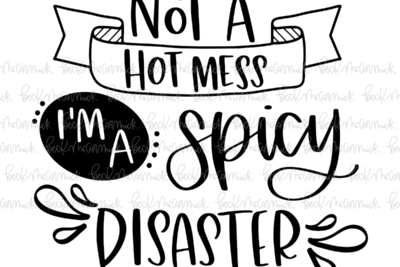 NOT A
HOT MESS
I'M A
spicy
DISASTER